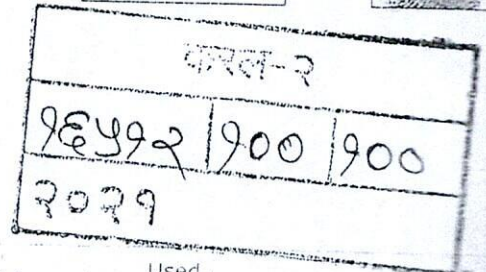 करल-२
१६५१२ १०० १००
२०२१
Used